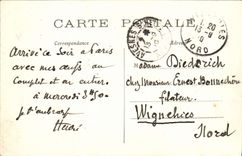 CARTE POSTALE
Correspondance
NORD
Arrivée ce soir à Paris
avec mes œufs au
complet et en entier
à mercredi 3h50.
Henri
Madame Diederich
chez Monsieur Ernest Bonnechère
filateur
Wignehies
Nord